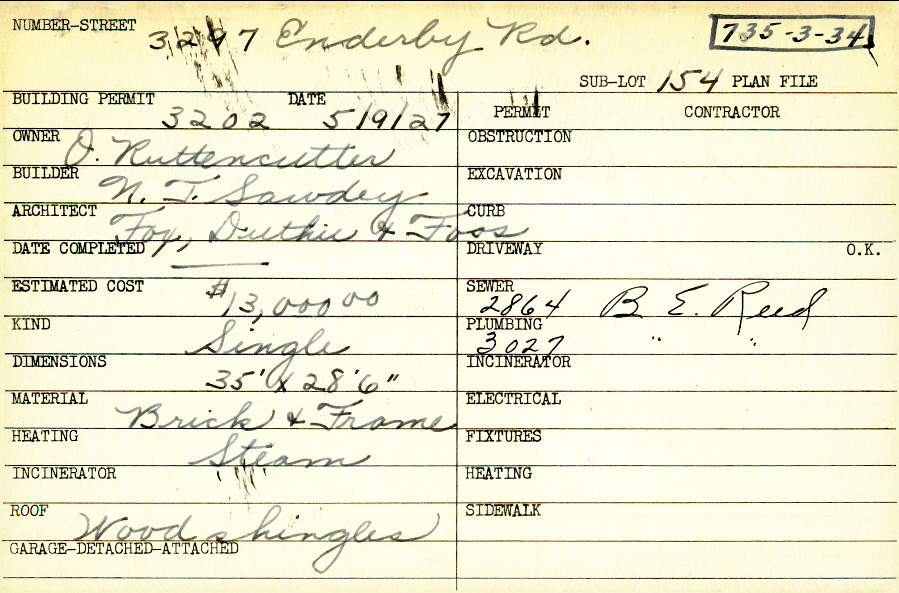 NUMBER-STREET 3297 Enderby Rd. 735-3-34
SUB-LOT 154 PLAN FILE
BUILDING PERMIT 3202 DATE 5/9/27
PERMIT CONTRACTOR
OWNER O. Ruttencutter
OBSTRUCTION
BUILDER N. T. Sawdey
EXCAVATION
ARCHITECT Fox, Duthie & Foos
CURB
DATE COMPLETED
DRIVEWAY O.K.
ESTIMATED COST $13,000 00
SEWER 2864 B. E. Reed
KIND Single
PLUMBING 3027 " "
DIMENSIONS 35' x 28'6"
INCINERATOR
MATERIAL Brick & Frame
ELECTRICAL
HEATING Steam
FIXTURES
INCINERATOR
HEATING
ROOF Wood shingles
SIDEWALK
GARAGE-DETACHED-ATTACHED